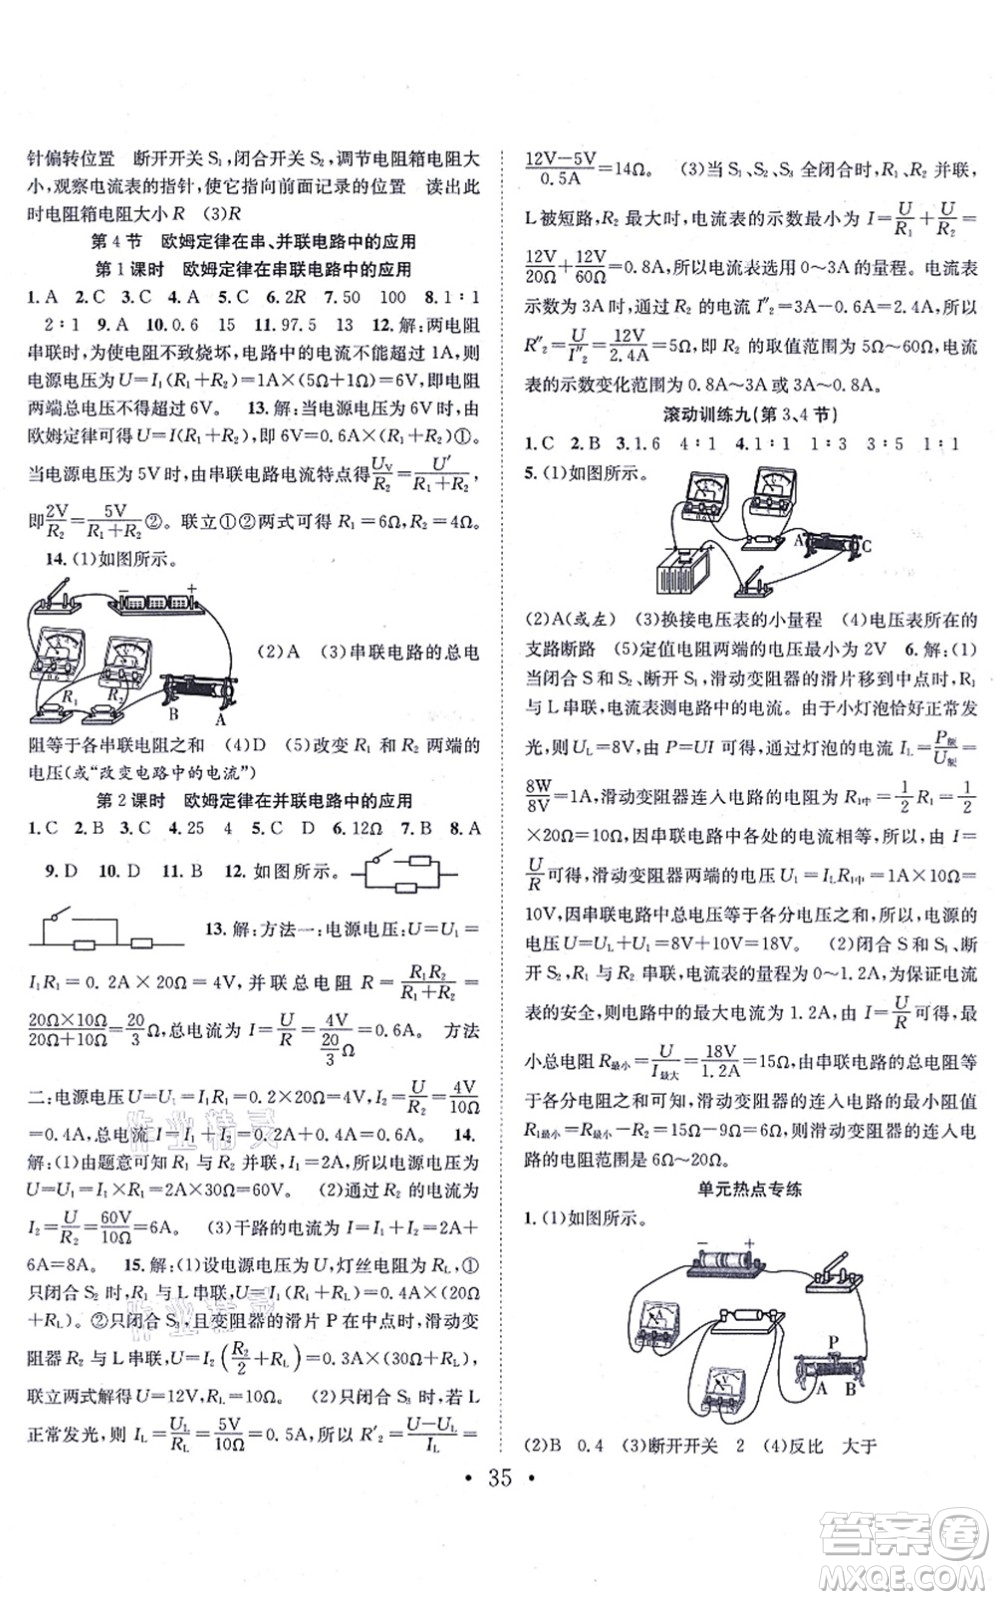 针偏转位置　断开开关 S₁，闭合开关 S₂，调节电阻箱电阻大
小，观察电流表的指针，使它指向前面记录的位置　读出此
时电阻箱电阻大小 R　(3)R
第 4 节　欧姆定律在串、并联电路中的应用
第 1 课时　欧姆定律在串联电路中的应用
1. A　2. C　3. C　4. A　5. C　6. 2R　7. 50　100　8. 1∶1
2∶1　9. A　10. 0.6　15　11. 97.5　13　12. 解：两电阻
串联时，为使电阻不致烧坏，电路中的电流不能超过 1A，则
电源电压为 U＝I₁(R₁＋R₂)＝1A×(5Ω＋1Ω)＝6V，即电阻
两端总电压不得超过 6V。　13. 解：当电源电压为 6V 时，由
欧姆定律可得 U＝I(R₁＋R₂)，即 6V＝0.6A×(R₁＋R₂)①。
当电源电压为 5V 时，由串联电路电流特点得 U_V/R₂＝U′/(R₁＋R₂)，
即 2V/R₂＝5V/(R₁＋R₂)②。联立①②两式可得 R₁＝6Ω，R₂＝4Ω。
14. (1)如图所示。
－　＋
R₁　R₂　B　A
(2)A　(3)串联电路的总电
阻等于各串联电阻之和　(4)D　(5)改变 R₁ 和 R₂ 两端的
电压(或“改变电路中的电流”)
第 2 课时　欧姆定律在并联电路中的应用
1. C　2. B　3. C　4. 25　4　5. C　D　6. 12Ω　7. B　8. A
9. D　10. D　11. B　12. 如图所示。
13. 解：方法一：电源电压：U＝U₁＝
I₁R₁＝0.2A×20Ω＝4V，并联总电阻 R＝R₁R₂/(R₁＋R₂)＝
(20Ω×10Ω)/(20Ω＋10Ω)＝20/3 Ω，总电流为 I＝U/R＝4V/(20/3 Ω)＝0.6A。　方法
二：电源电压 U＝U₁＝I₁R₁＝0.2×20Ω＝4V，I₂＝U/R₂＝4V/10Ω
＝0.4A，总电流 I＝I₁＋I₂＝0.2A＋0.4A＝0.6A。　14.
解：(1)由题意可知 R₁ 与 R₂ 并联，所以电源电压 U＝U₁＝
U₂＝I₁R₁＝2A×30Ω＝60V。　(2)通过 R₂ 的电流为
I₂＝U/R₂＝60V/10Ω＝6A。　(3)干路的电流为 I＝I₁＋I₂＝2A＋
6A＝8A。　15. 解：(1)设电源电压为 U，灯丝电阻为 R_L，①
只闭合 S₂ 时，R₁ 与 L 串联，U＝I₁(R₁＋R_L)＝0.4A×
(20Ω＋R_L)。②只闭合 S₃，且变阻器的滑片 P 在中点时，滑动变
阻器 R₂ 与 L 串联，U＝I₂(R₂/2＋R_L)＝0.3A×(60Ω/2＋R_L)，
联立两式解得 U＝12V，R_L＝10Ω。　(2)只闭合 S₃ 时，若 L
正常发光，I_L＝U_L/R_L＝5V/10Ω＝0.5A，所以 R′₂＝(U－U_L)/I_L＝
(12V－5V)/0.5A＝14Ω。　(3)当 S₁、S₂、S₃ 全闭合时，R₁、R₂ 并联，
L 被短路，R₂ 最大时，电流表的示数最小为 I＝U/R₁＋U/R₂＝
12V/20Ω＋12V/60Ω＝0.8A，所以电流表应选 0～3A 的量程。电流表
示数为 3A 时，通过 R₂ 的电流 I″₂＝3A－0.6A＝2.4A，所以
R″₂＝U/I″₂＝12V/2.4A＝5Ω，即 R₂ 的取值范围为 5Ω～60Ω，电流
表的示数变化范围为 0.8A～3A 或 3A～0.8A。
滚动训练九(第 3、4 节)
1. C　2. B　3. 1.6　4∶1　4. 1∶1　1∶3　3∶5　1∶1
5. (1)如图所示。
A　C
(2)A(或左)　(3)换接电压表的小量程　(4)电压表所在的
支路断路　(5)定值电阻两端的电压最小为 2V　6. 解：(1)
当闭合 S 和 S₂、断开 S₁，滑动变阻器的滑片移到中点时，R₁
与 L 串联，电流表测电路中的电流。由于小灯泡恰好正常发
光，所以，U_L＝8V，由 P＝UI 可得，通过灯泡的电流 I_L＝P额/U额＝
8W/8V＝1A，滑动变阻器连入电路的电阻为 R₁中＝1/2R₁＝1/2
×20Ω＝10Ω，因串联电路中各处的电流相等，所以，由 I＝
U/R可得，滑动变阻器两端的电压 U₁＝I_L R₁中＝1A×10Ω＝
10V，因串联电路中总电压等于各分电压之和，所以，电源的
电压 U＝U_L＋U₁＝8V＋10V＝18V。　(2)闭合 S 和 S₁、断
开 S₂，R₁ 与 R₂ 串联，电流表的量程为 0～1.2A，为保证电流
表的安全，电路中的最大电流为 1.2A，由 I＝U/R可得，最
小总电阻 R最小＝U/I最大＝18V/1.2A＝15Ω，由串联电路的总电阻等
于各分电阻之和可知，滑动变阻器的连入电路的最小阻值
R₁最小＝R最小－R₂＝15Ω－9Ω＝6Ω，所以滑动变阻器的连入电
路的电阻范围是 6Ω～20Ω。
单元热点专练
1. (1)如图所示。
－　＋
P
A　B
(2)B　0.4　(3)断开开关　2　(4)反比　大于
• 35 •
作业精灵
作业精灵
答案卷
MXQE.COM